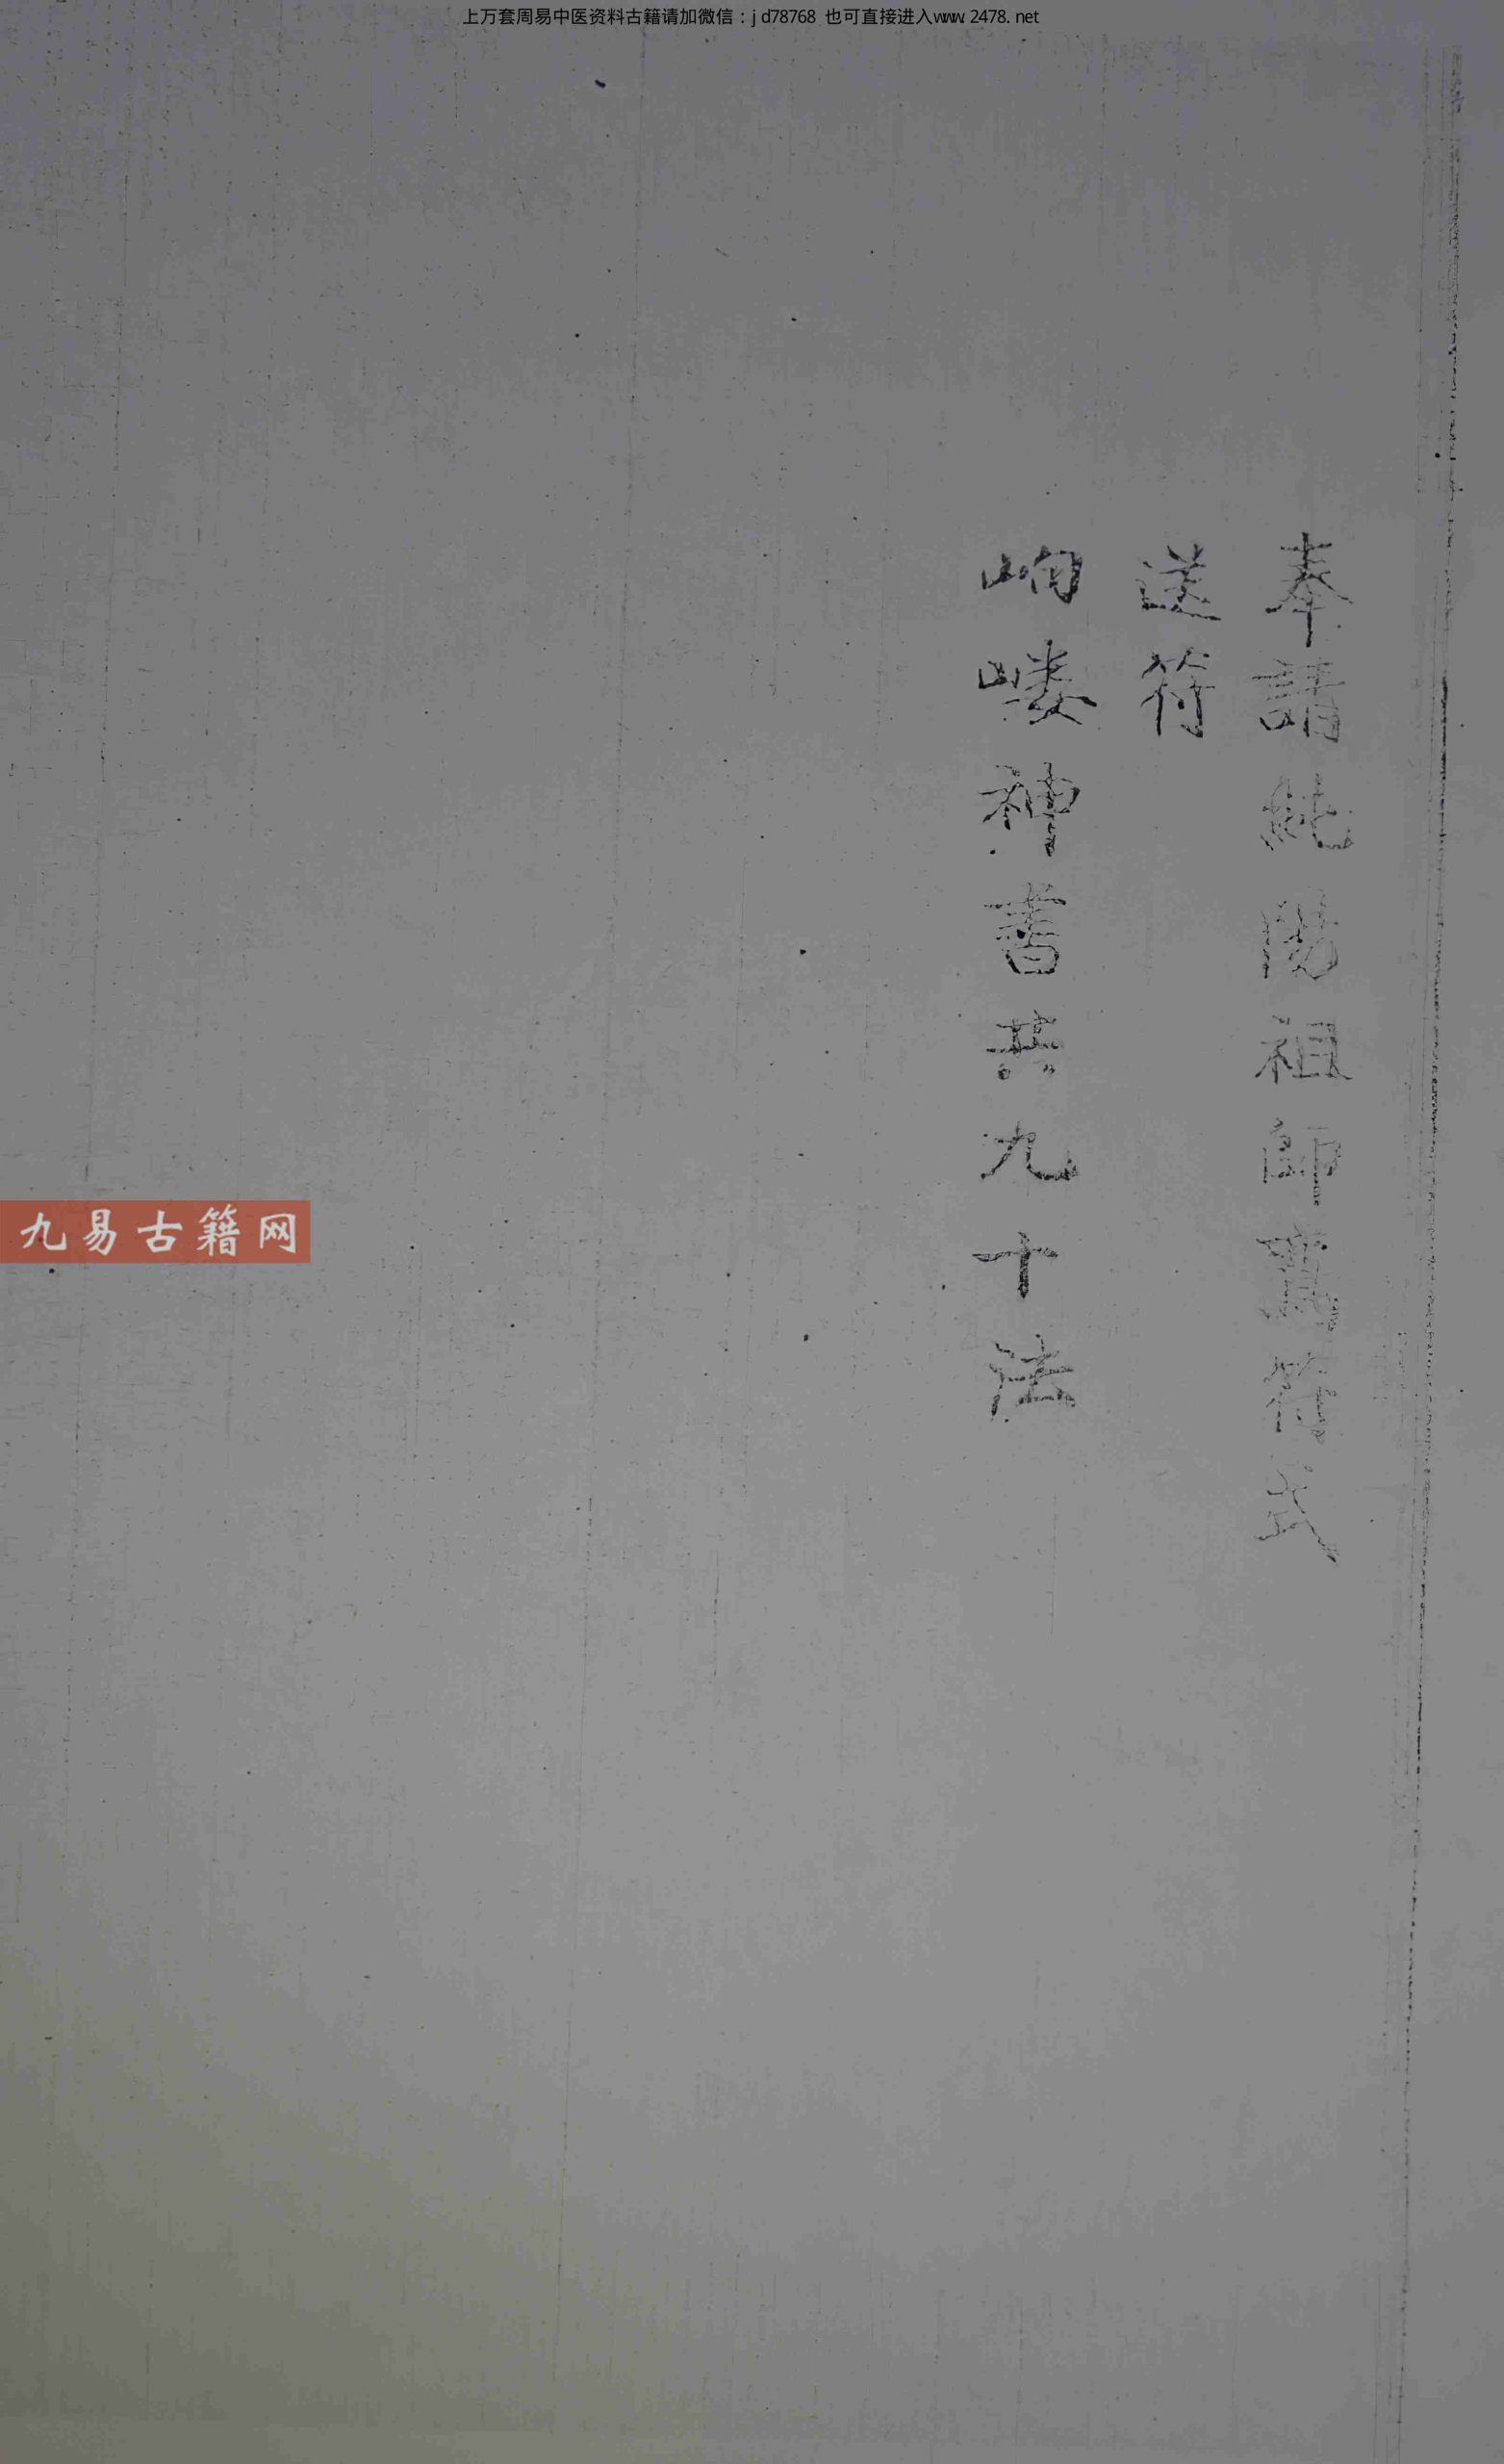 上万套周易中医资料古籍请加微信：jd78768 也可直接进入www.2478.net
奉請純陽祖師鸞符式
送符
岣嶁神書共九十法
九易古籍网